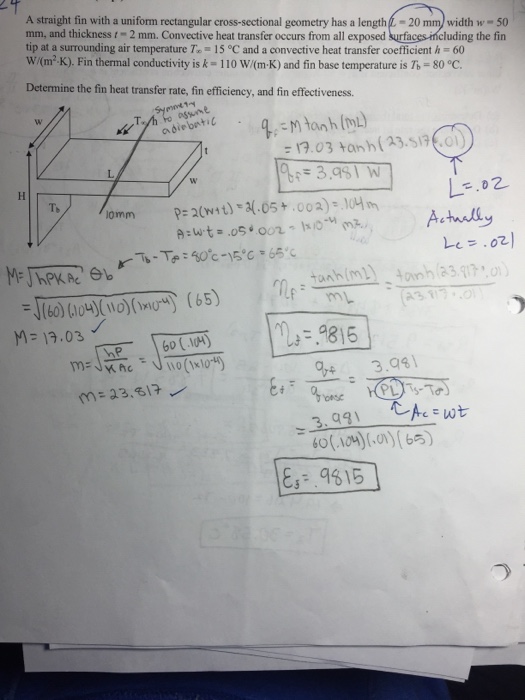 24
A straight fin with a uniform rectangular cross-sectional geometry has a length L = 20 mm, width w = 50
mm, and thickness t = 2 mm. Convective heat transfer occurs from all exposed surfaces including the fin
tip at a surrounding air temperature T∞ = 15 °C and a convective heat transfer coefficient h = 60
W/(m²·K). Fin thermal conductivity is k = 110 W/(m·K) and fin base temperature is Tb = 80 °C.
Determine the fin heat transfer rate, fin efficiency, and fin effectiveness.
symmetry
to assume
adiabatic
T∞, h
w
t
L
w
H
Tb
10mm
qf = M tanh(mL)
= 17.03 tanh(23.817*.01)
qf = 3.981 W
L = .02
Actually
Lc = .021
P = 2(w+t) = 2(.05+.002) = .104 m
A = w·t = .05*.002 = 1x10⁻⁴ m²
Tb - T∞ = 80°C - 15°C = 65°C
M = √hPKAc θb
= √(60)(.104)(110)(1x10⁻⁴) (65)
M = 17.03 ✓
m = √hP/KAc = √60(.104)/110(1x10⁻⁴)
m = 23.817 ✓
ηf = tanh(mL)/mL = tanh(23.817*.01)/(23.817*.01)
ηf = .9815
εf = qf/qbase = 3.981/h(PL)(Tb-T∞)
Ac = wt
= 3.981/60(.104)(.01)(65)
εf = .9815